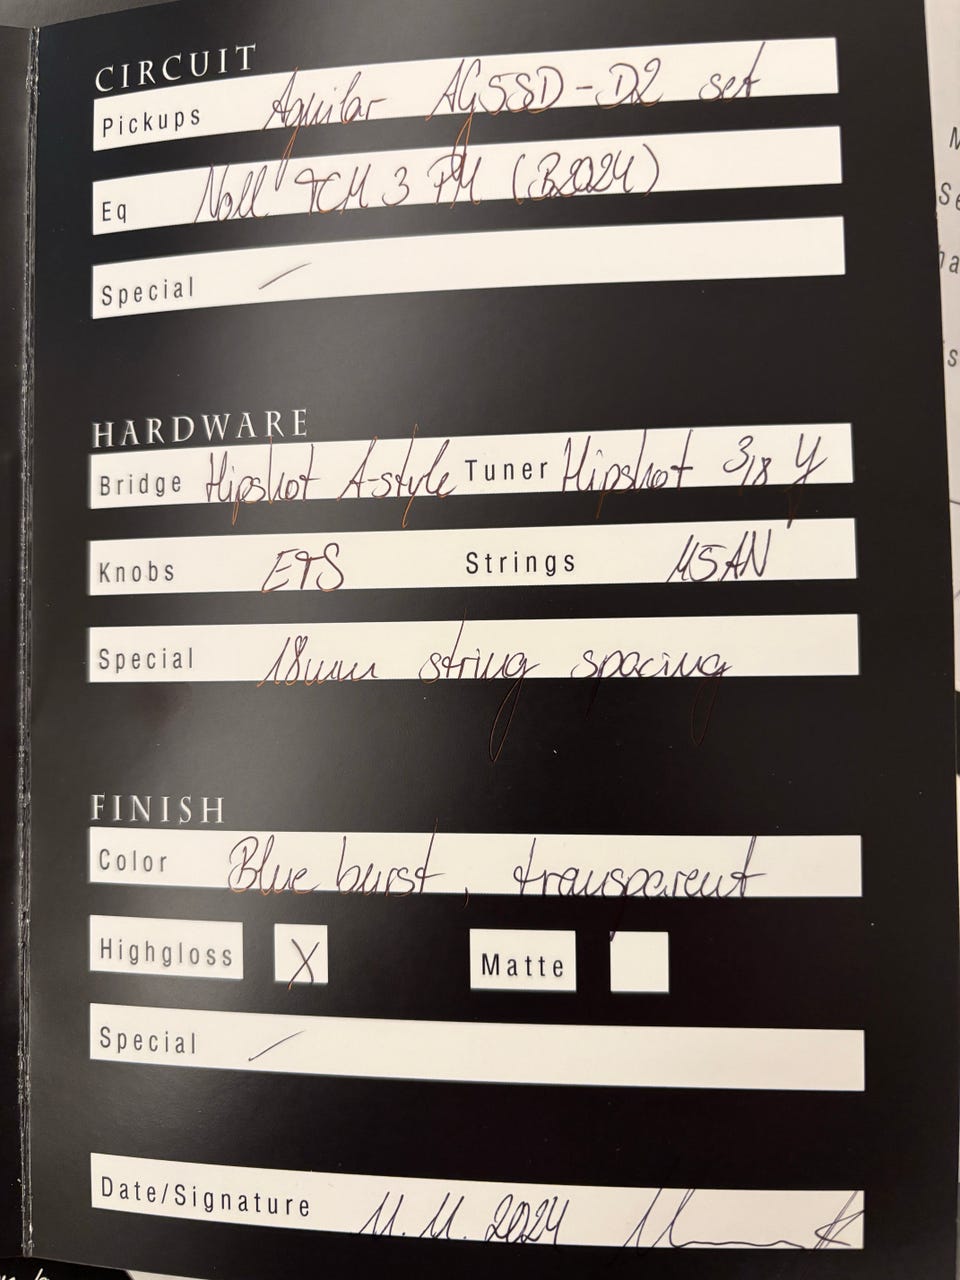 CIRCUIT
Pickups Aguilar AG5SD-D2 set
Eq Noll TCM 3 PM (B2024)
Special /
HARDWARE
Bridge Hipshot A-style Tuner Hipshot 3/8 Y
Knobs ETS Strings MSAN
Special 18mm string spacing
FINISH
Color Blue burst, transparent
Highgloss X Matte
Special /
Date/Signature 11.11.2024